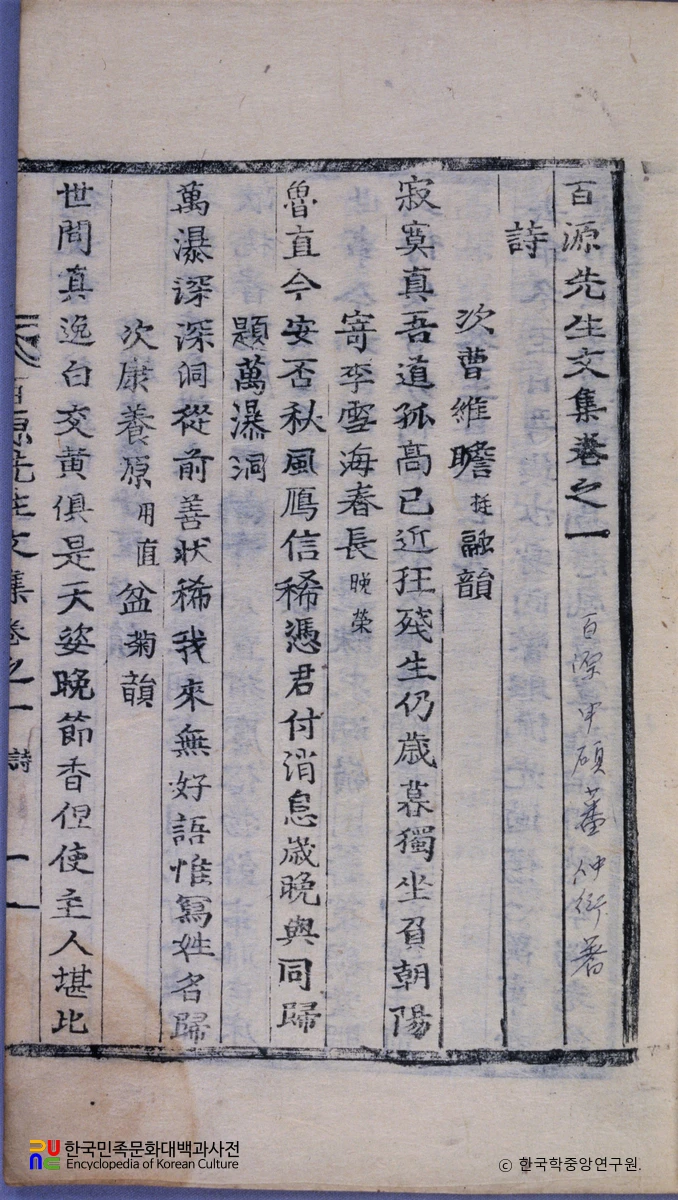 百源先生文集卷之一
百源申碩蕃仲衍著
詩
次曹維瞻挺融韻
寂寞真吾道孤高已近狂殘生仍歲暮獨坐負朝陽
寄李雪海春長晚榮
魯直今安否秋風鴈信稀憑君付消息歲晚與同歸
題萬瀑洞
萬瀑深深洞從前善狀稀我來無好語惟寫姓名歸
次康養原用直盆菊韻
世間真逸白交黃俱是天姿晚節香但使主人堪比
百源先生文集卷之一 詩 一
한국민족문화대백과사전
Encyclopedia of Korean Culture
ⓒ 한국학중앙연구원.